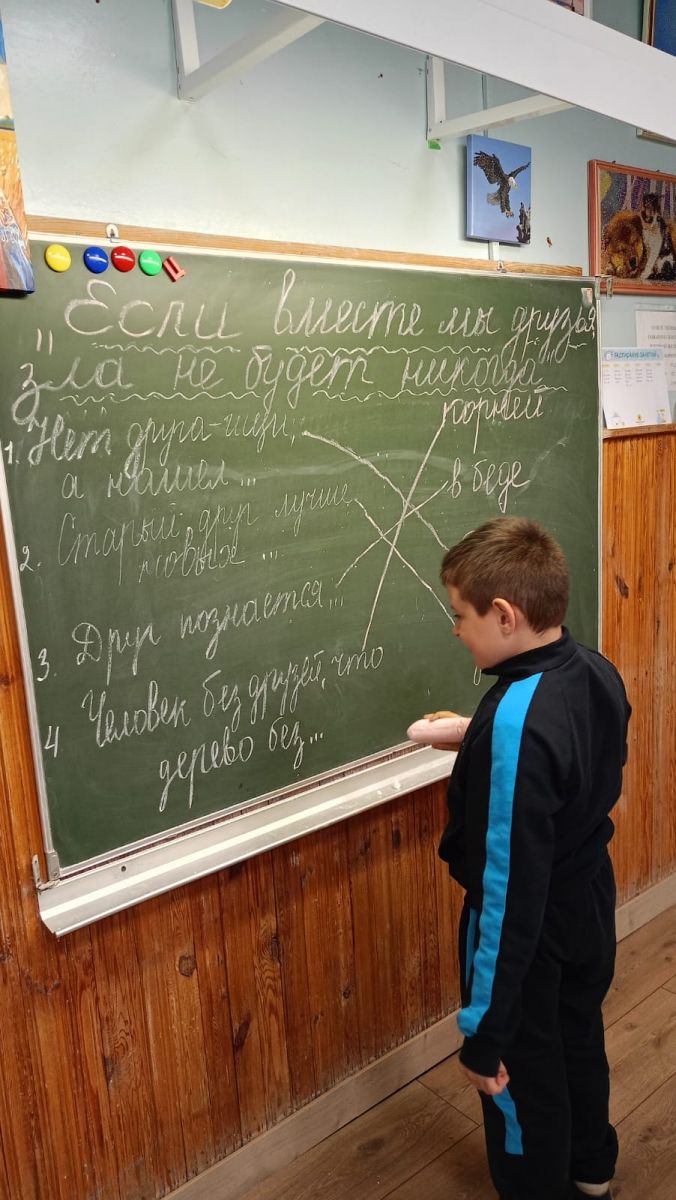 "Если вместе мы друзья,
зла не будет никогда"
1. Нет друга-ищи,
а нашел...
2. Старый друг лучше
новых ...
3. Друг познается...
4 Человек без друзей, что
дерево без...
корней
в беде
РАСПИСАНИЕ ЗАНЯТИЙ